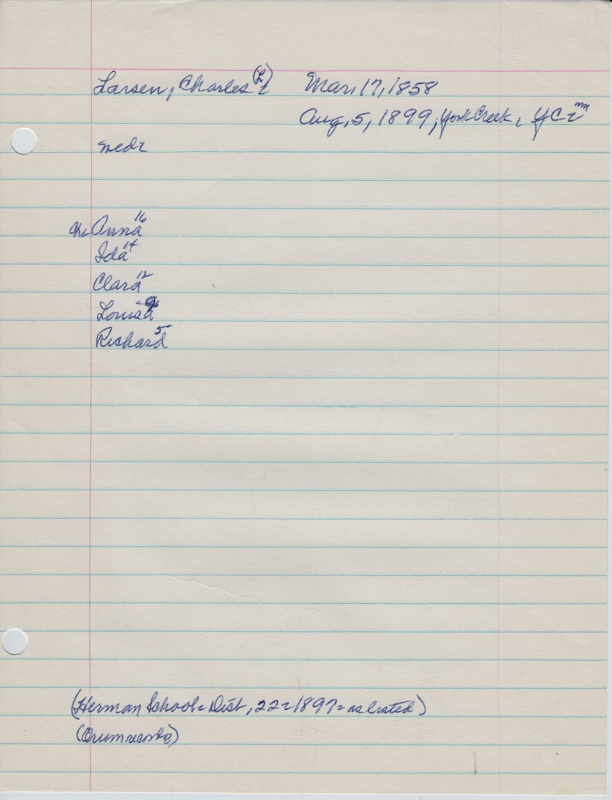 Larsen, Charles (L) Mar. 17, 1858
Aug. 5, 1899, York Creek, YC
ch. Anna 16
Ida 14
Clara 12
Louisa 9
Richard 5
(Herman School = Dist. 22 1897 = as listed)